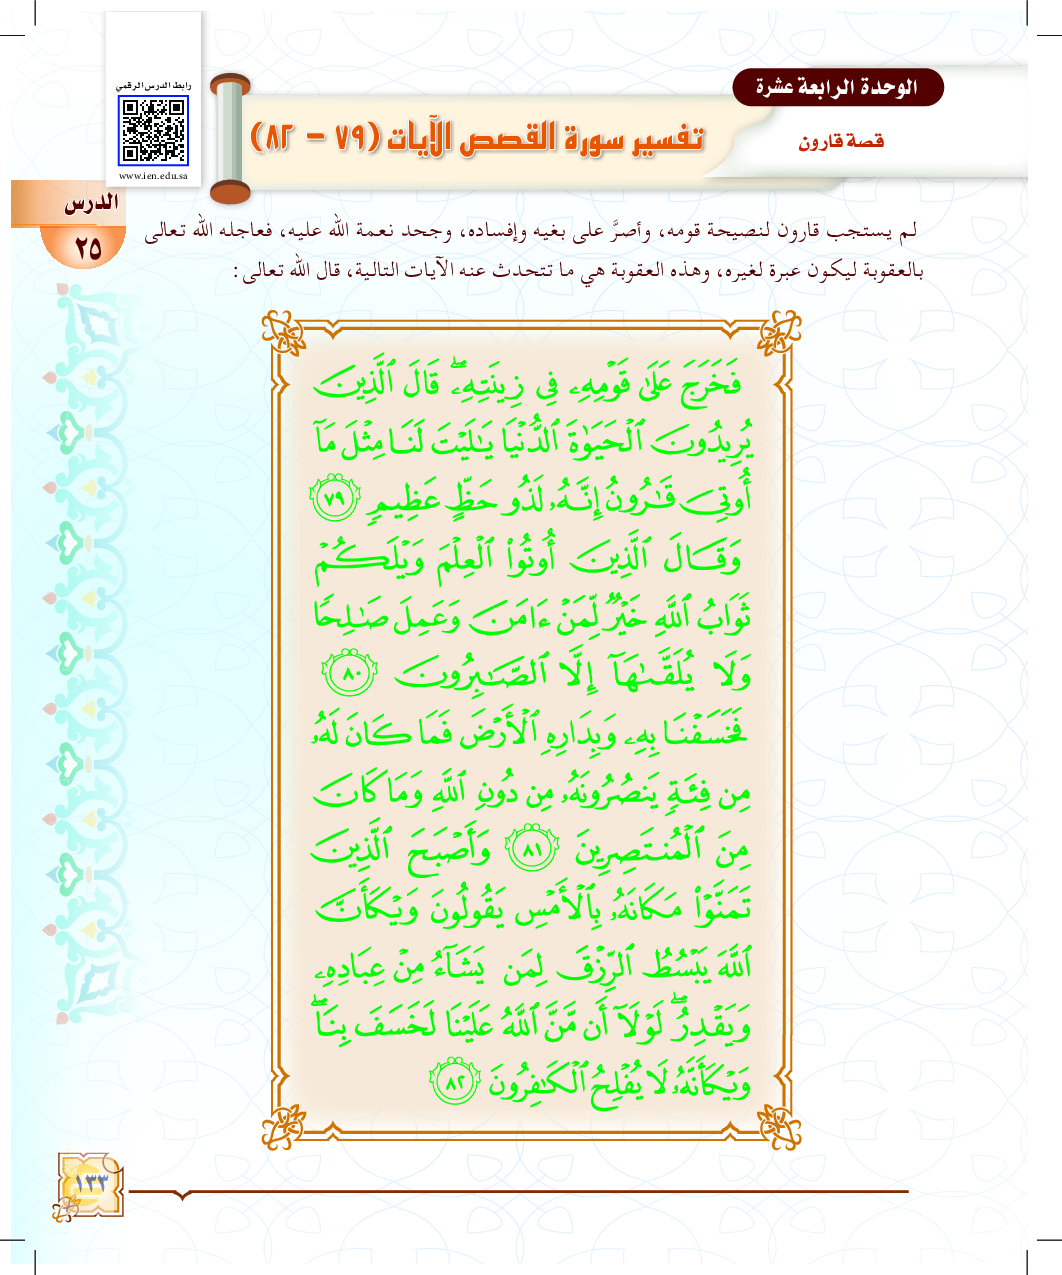 رابط الدرس الرقمي
www.ien.edu.sa
الوحدة الرابعة عشرة
قصة قارون
تفسير سورة القصص الآيات (٧٩ - ٨٢)
الدرس
٢٥
لم يستجب قارون لنصيحة قومه، وأصرَّ على بغيه وإفساده، وجحد نعمة الله عليه، فعاجله الله تعالى
بالعقوبة ليكون عبرة لغيره، وهذه العقوبة هي ما تتحدث عنه الآيات التالية، قال الله تعالى:
فَخَرَجَ عَلَىٰ قَوْمِهِۦ فِى زِينَتِهِۦۖ قَالَ ٱلَّذِينَ
يُرِيدُونَ ٱلْحَيَوٰةَ ٱلدُّنْيَا يَـٰلَيْتَ لَنَا مِثْلَ مَآ
أُوتِىَ قَـٰرُونُ إِنَّهُۥ لَذُو حَظٍّ عَظِيمٍ ٧٩
وَقَالَ ٱلَّذِينَ أُوتُوا۟ ٱلْعِلْمَ وَيْلَكُمْ
ثَوَابُ ٱللَّهِ خَيْرٌ لِّمَنْ ءَامَنَ وَعَمِلَ صَـٰلِحًا
وَلَا يُلَقَّىٰهَآ إِلَّا ٱلصَّـٰبِرُونَ ٨٠
فَخَسَفْنَا بِهِۦ وَبِدَارِهِ ٱلْأَرْضَ فَمَا كَانَ لَهُۥ
مِن فِئَةٍ يَنصُرُونَهُۥ مِن دُونِ ٱللَّهِ وَمَا كَانَ
مِنَ ٱلْمُنتَصِرِينَ ٨١ وَأَصْبَحَ ٱلَّذِينَ
تَمَنَّوْا۟ مَكَانَهُۥ بِٱلْأَمْسِ يَقُولُونَ وَيْكَأَنَّ
ٱللَّهَ يَبْسُطُ ٱلرِّزْقَ لِمَن يَشَآءُ مِنْ عِبَادِهِۦ
وَيَقْدِرُۖ لَوْلَآ أَن مَّنَّ ٱللَّهُ عَلَيْنَا لَخَسَفَ بِنَاۖ
وَيْكَأَنَّهُۥ لَا يُفْلِحُ ٱلْكَـٰفِرُونَ ٨٢
١٣٣